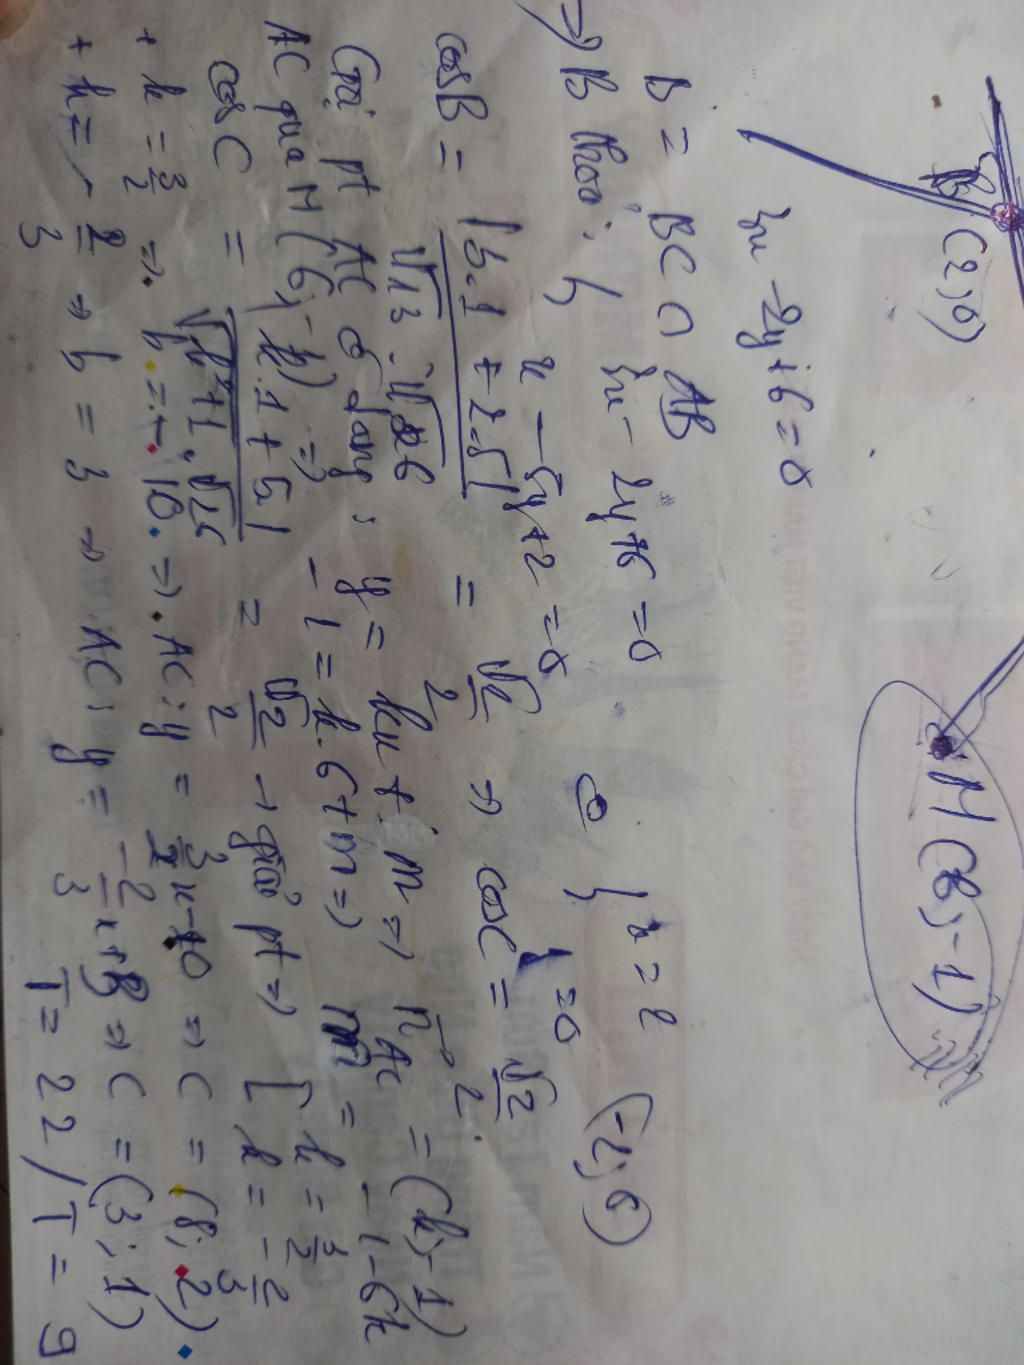 M(6;-1)
B (2;0)
3x - 2y + 6 = 0
B = BC ∩ AB
⇒ B thoả: { 3x - 2y + 6 = 0
x - 5y + 2 = 0 ⇔ { x = 2
y = 0 (-2; 0)
cosB = |3.1 + 2.5| / √13 . √26 = √2/2 ⇒ cosC = √2/2.
Gọi pt AC ở dạng: y = kx + m ⇒ n⃗AC = (k; -1)
AC qua M(6; -1) ⇒ -1 = k.6 + m ⇒ m = -1 - 6k
cosC = |k.1 + 5| / √k²+1 . √26 = √2/2 → giải pt ⇒ [ k = 3/2
k = -2/3
+ k = 3/2 ⇒ b = -10 ⇒ AC: y = 3/2x - 10 ⇒ C = (8; 2)
+ k = -2/3 ⇒ b = 3 ⇒ AC: y = -2/3x + 3 ⇒ C = (3; 1)
T = 22 / T = 9